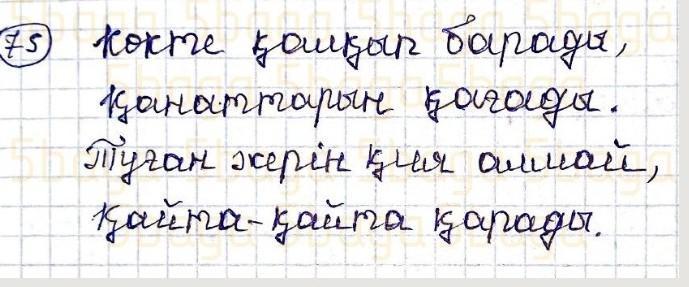 75 Көкте қалқып барады,
Қанаттарын қағады.
Туған жерін қия алмай,
Қайта-қайта қарады.